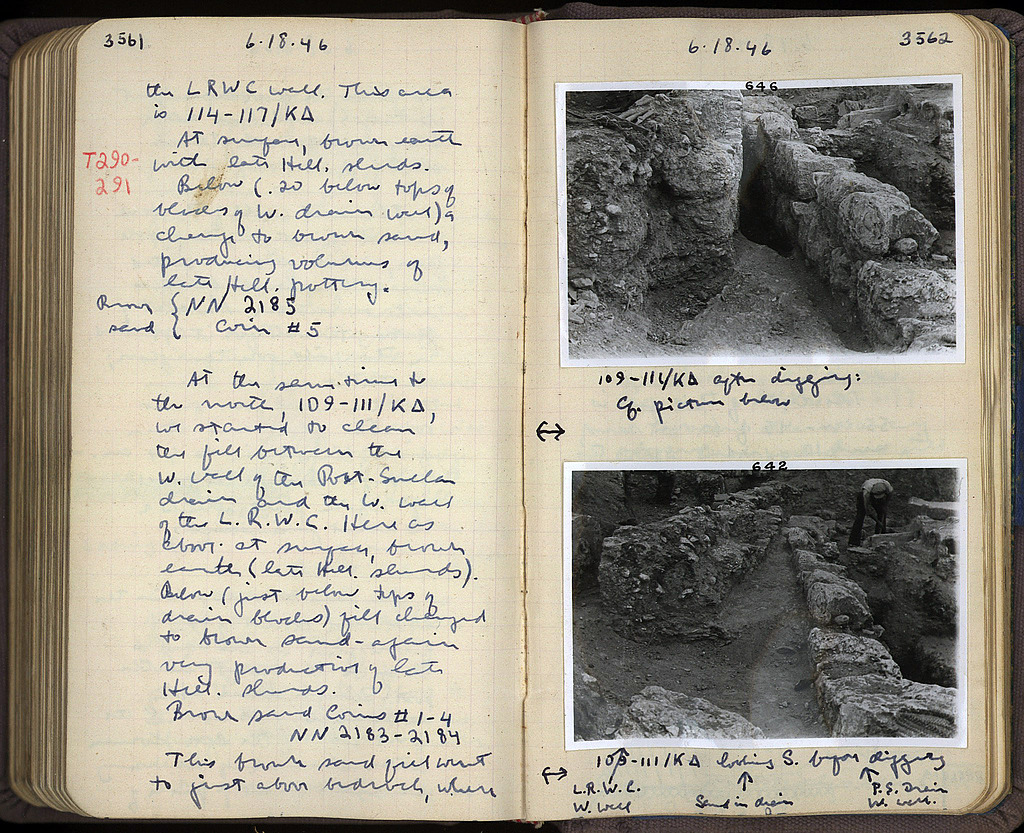 3561
6·18·46
the LRWC wall. This area
is 114-117/KΔ
At surface, brown earth
with late Hell. sherds.
T290-
291
Below (.20 below tops of
blocks of W. drain wall) a
change to brown sand,
producing volumes of
late Hell. pottery.
Brown
sand
{ NN 2185
{ Coin #5
At the same time to
the north, 109-111/KΔ,
we started to clean
the fill between the
W. wall of the Post-Sullan
drain and the W. wall
of the L.R.W.C. Here as
above at surface, brown
earth (late Hell. sherds).
Below (just below tops of
drain blocks) fill changed
to brown sand - again
very productive of late
Hell. sherds.
Brown sand Coins #1-4
NN 2183-2184
This brown sand fill went
to just above bedrock, where
6·18·46
3562
646
109-111/KΔ after digging:
Cf. picture below
↔
642
↔
-111/KΔ looking S. before digging
L.R.W.C.
W. Wall
↑
Sand in drain
↑
P.S. Drain
W. wall.